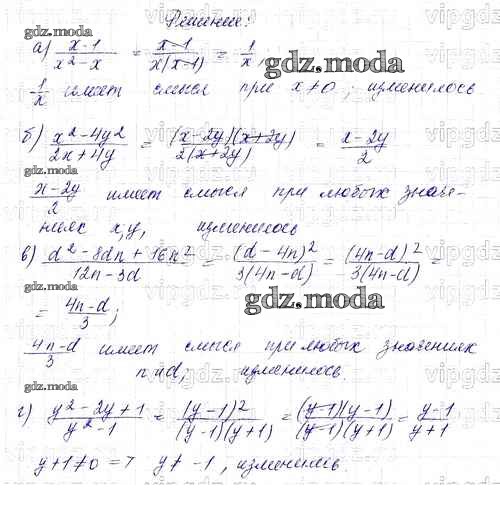 Решение:
gdz.moda
а) x-1/x²-x = x-1/x(x-1) = 1/x,
gdz.moda
1/x имеет смысл при x≠0; изменилось
б) x²-4y²/2x+4y = (x-2y)(x+2y)/2(x+2y) = x-2y/2
gdz.moda
x-2y/2 имеет смысл при любых значе-
ниях x,y, изменилось
в) d²-8dn+16n²/12n-3d = (d-4n)²/3(4n-d) = (4n-d)²/3(4n-d) =
gdz.moda
= 4n-d/3;
4n-d/3 имеет смысл при любых значениях
gdz.moda
n и d; изменилось.
г) y²-2y+1/y²-1 = (y-1)²/(y-1)(y+1) = (y-1)(y-1)/(y-1)(y+1) = y-1/y+1
y+1≠0 => y≠-1, изменилось.
gdz.moda